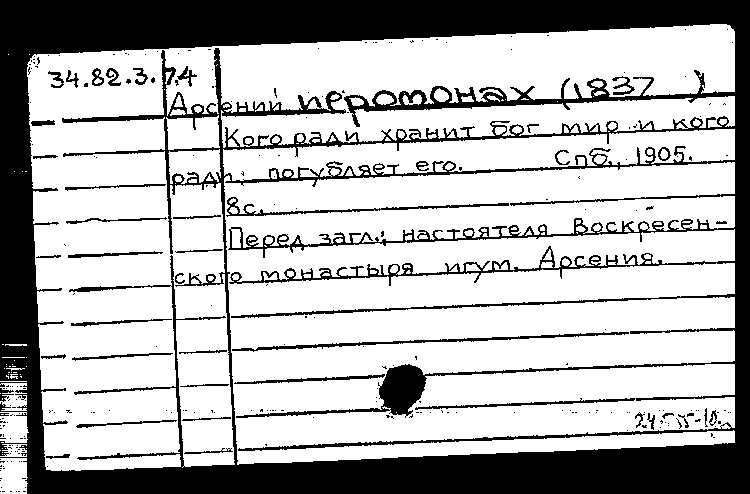 34.82.3.74
Арсений иеромонах (1837 )
Кого ради хранит бог мир и кого
ради: погубляет его. Спб., 1905.
8с.
Перед загл.: настоятеля Воскресен-
ского монастыря игум. Арсения.